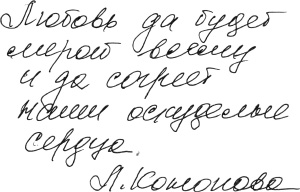 Любовь да будет
мерой всему
и да согреет
наши оскуделые
сердца.
Л. Комонова